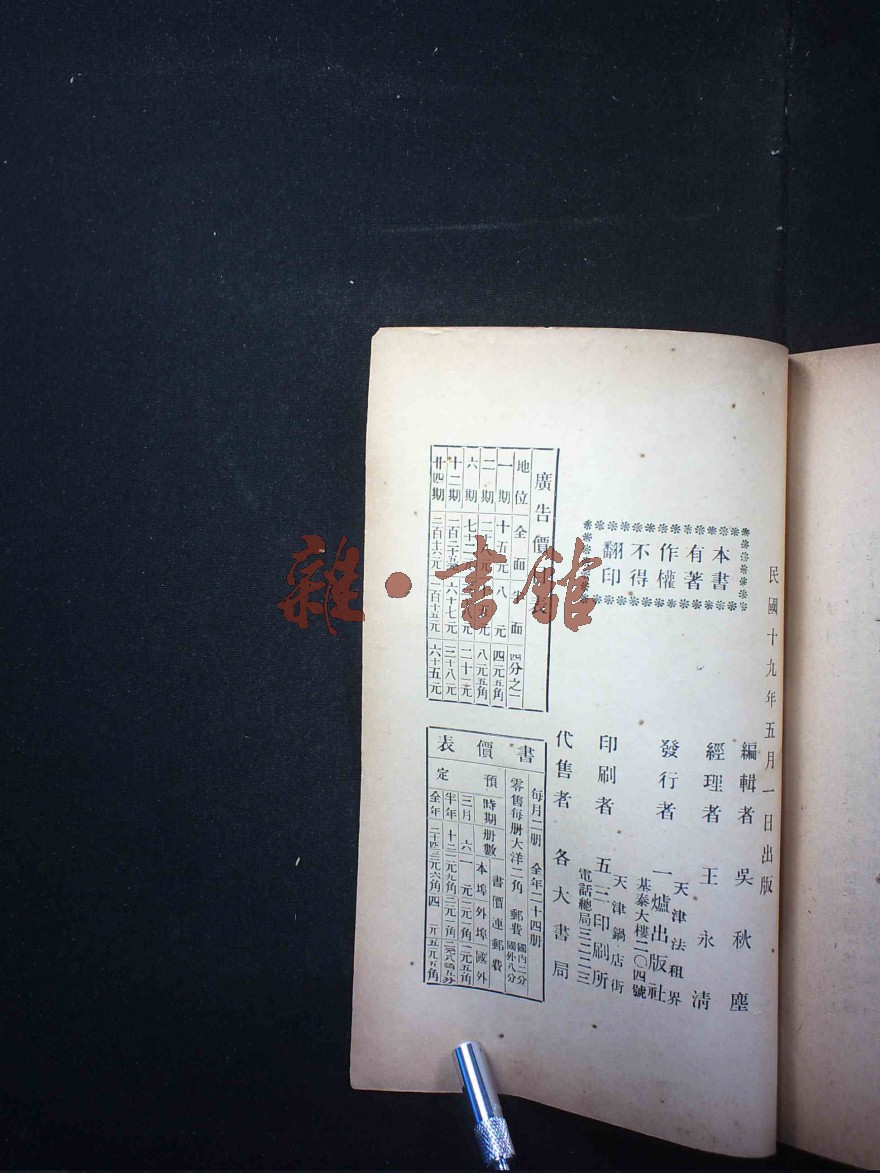 民國十九年五月一日出版
編輯者 吳秋塵
經理者 王永清
發行者 一爐出版社
天津法租界
基泰大樓二〇四號
印刷者 五三印刷所
天津鍋店街
電話總局三二二三
代售者 各大書局
本書
有著
作權
不得
翻印
廣告價目表
地位 全面 半面 四分之一
一期 十五元 八元 四元五角
二期 八元五角
六期 二十二元
十二期 六十七元 三十八元
廿四期 一百十五元 六十五元
書價表
每月二册 全年二十四册
零售每册大洋二角 郵費 國內二分 國外八分
預定
時期 册數 書價連郵費
本埠 外埠 國外
三月 六 一元 一元二角 二元五角
半年 十二
全年 二十四 三元六角 四元